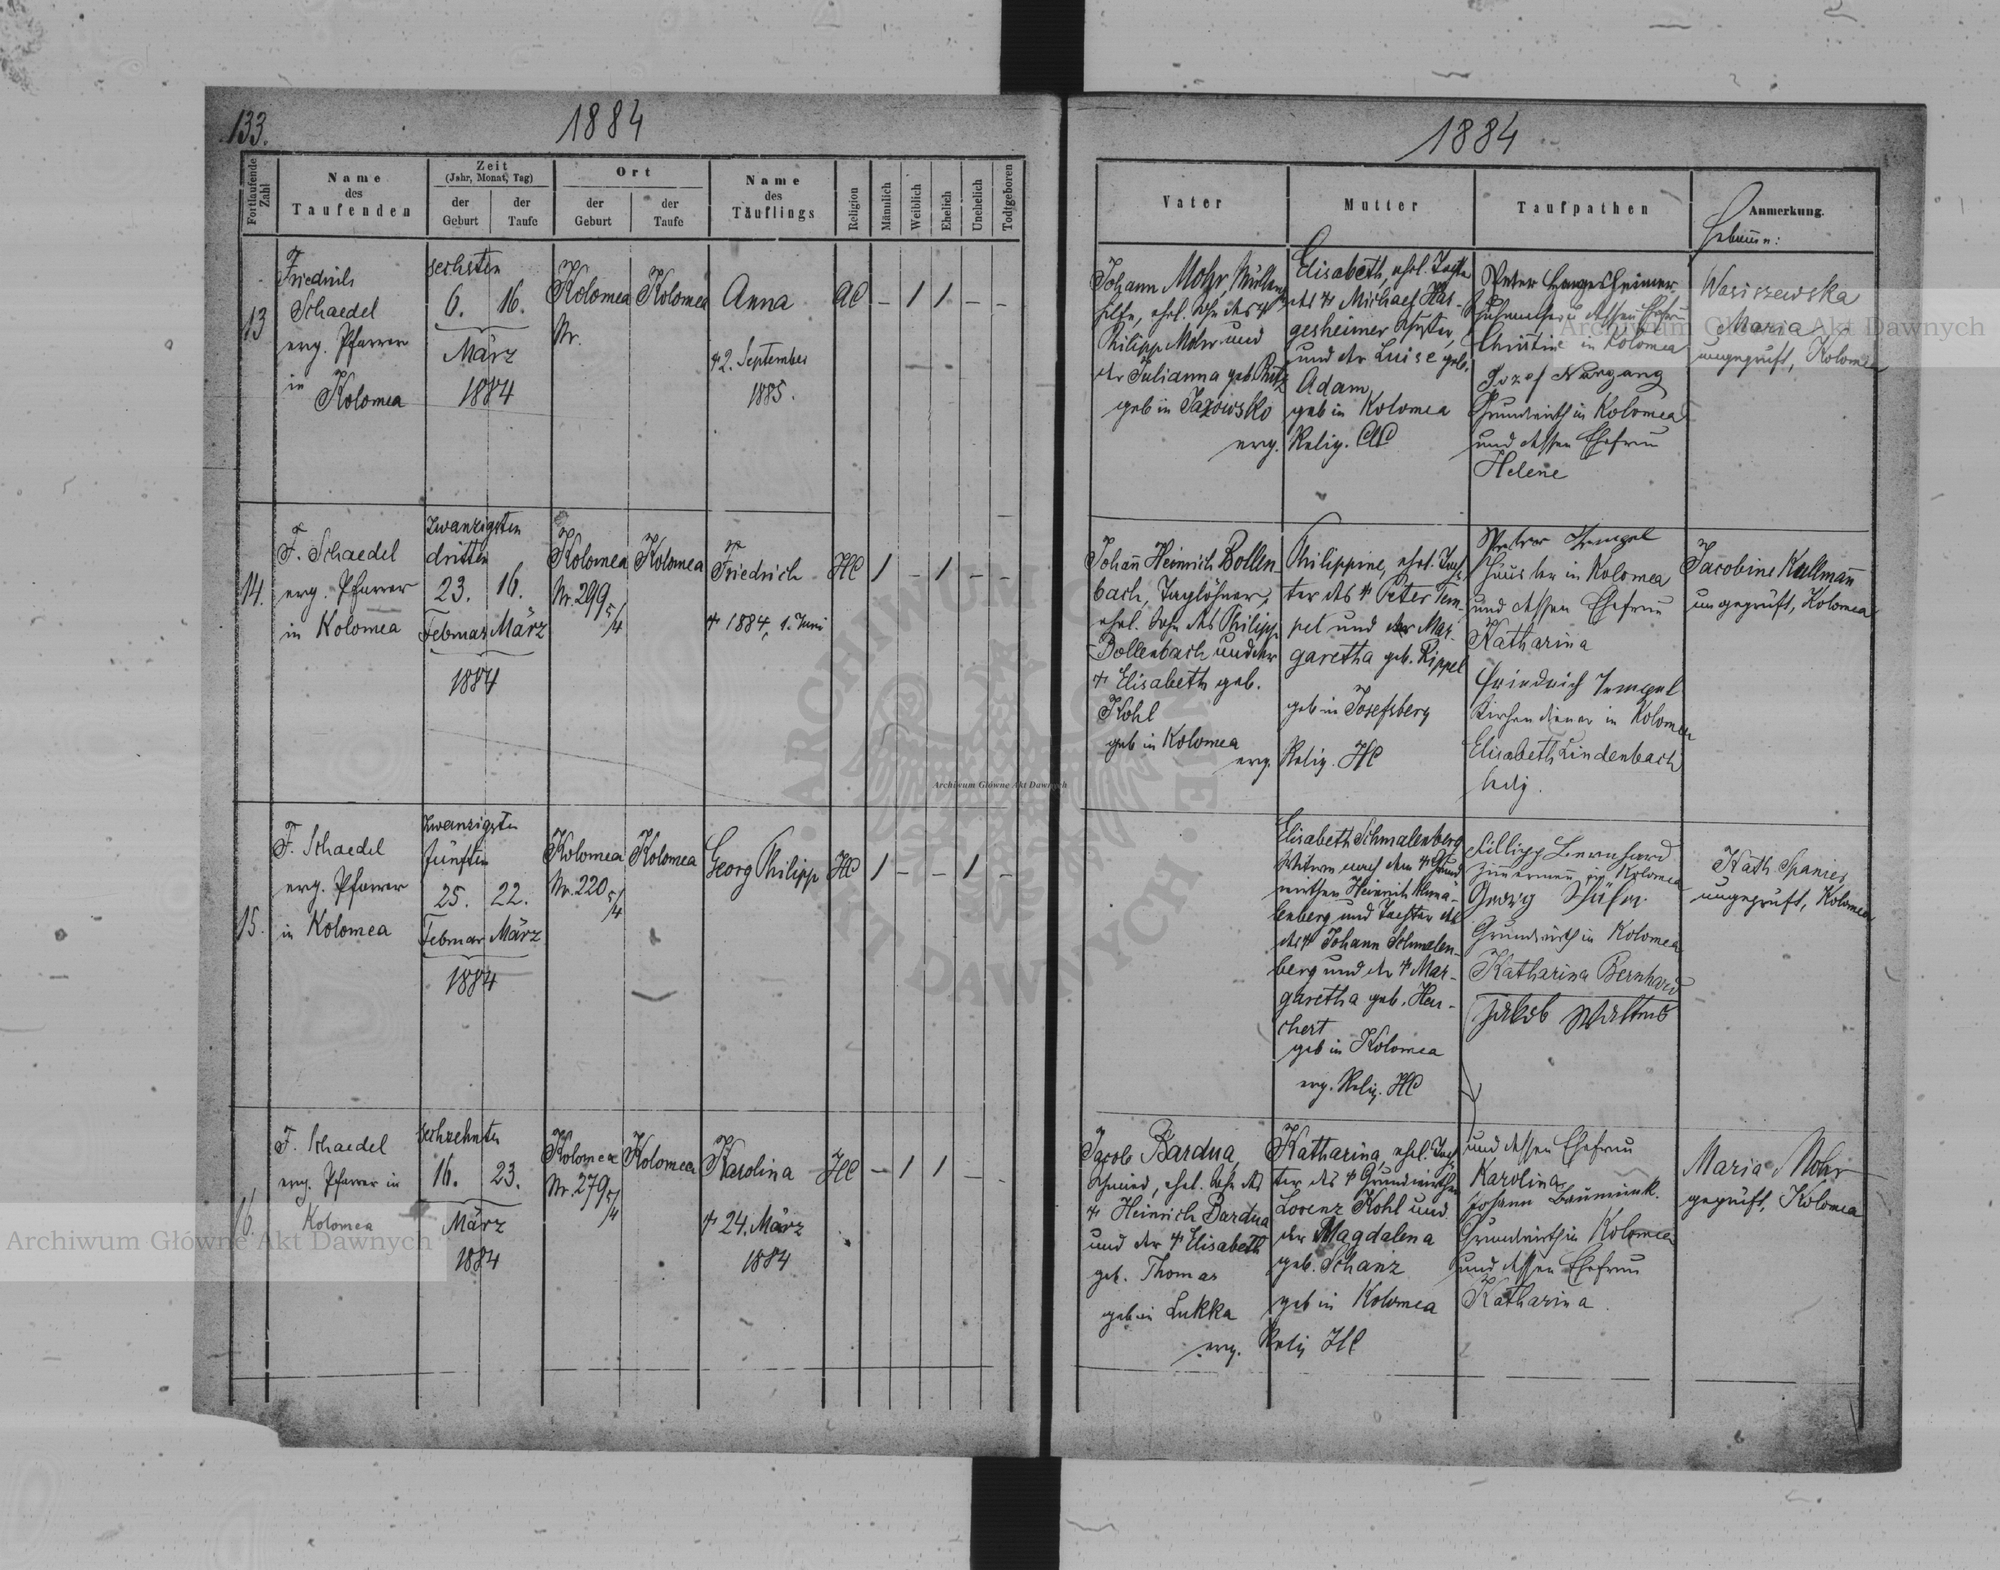 133.
1884
Fortlaufende Zahl
Name
des
Taufenden
Zeit
(Jahr, Monat, Tag)
der Geburt
der Taufe
Ort
der Geburt
der Taufe
Name
des
Täuflings
Religion
Männlich
Weiblich
Ehelich
Unehelich
Todtgeboren
13
Friedrich
Schaedel
evg. Pfarrer
in
Kolomea
sechsten
6. 16.
März
1884
Kolomea
Nr.
Kolomea
Anna
† 2. September
1885.
AC
– 1 1 – –
14.
F. Schaedel
evg. Pfarrer
in Kolomea
zwanzigsten
dritten
23. 16.
Februar März
1884
Kolomea
Nr. 299 5/4
Kolomea
Friedrich
† 1884, 1. Juni
HC
1 – 1 – –
15.
F. Schaedel
evg. Pfarrer
in Kolomea
zwanzigsten
fünften
25. 22.
Februar März
1884
Kolomea
Nr. 220 5/4
Kolomea
Georg Philipp
HC
1 – – 1 –
16.
F. Schaedel
evg. Pfarrer in
Kolomea
sechzehnten
16. 23.
März
1884
Kolomea
Nr. 279 5/4
Kolomea
Karolina
† 24. März
1884
HC
– 1 1 – –
1884
Vater
Mutter
Taufpathen
Anmerkung.
Hebamme:
Johann Mohr,
ehel. Sohn des †
Philipp Mohr und
der Julianna geb.
geb in Jazowsko
evg.
Elisabeth, ehel. Tochter
des † Michael Har-
gesheimer
und der Luise geb.
Adam,
geb in Kolomea
Relig. AC
Peter Hargesheimer
dessen Ehefrau
Christine in Kolomea
Jozef Nargang
Grundwirth in Kolomea
und dessen Ehefrau
Helene
Wasiszewska
Maria
ungeprüft, Kolomea
Johann Heinrich Bollen
bach, Taglöhner,
ehel. Sohn des Philipp
Bollenbach und der
† Elisabeth geb.
Kohl
geb in Kolomea
evg.
Philippine, ehel. Toch-
ter des † Peter Tem-
pel und der Mar-
garetha geb. Rippel
geb in Josefsberg
Relig. HC
Peter Tempel
Häusler in Kolomea
und dessen Ehefrau
Katharina
Friedrich Tempel
Kirchendiener in Kolomea
Elisabeth Lindenbach
ledig.
Jacobine Kullmann
ungeprüft, Kolomea
Elisabeth Schmalenberg
Witwe nach dem † Grund
wirthen Heinrich Schma-
lenberg und Tochter
des † Johann Schmalen-
berg und der † Mar-
garetha geb. Her-
chert
geb in Kolomea
evg. Relig. HC
Fillipp Bernhard
Zimermann in Kolomea
Georg Schäfer
Grundwirth in Kolomea
Katharina Bernhard
Jakob
Kath. Spanier
ungeprüft, Kolomea
Jacob Bardua,
Schmied, ehel. Sohn des
† Heinrich Bardua
und der † Elisabeth
geb. Thomas
geb in Lukka
evg.
Katharina, ehel. Toch
ter des † Grundwirthen
Lorenz Kohl und
der Magdalena
geb. Schanz
geb in Kolomea
Relig HC
und dessen Ehefrau
Karolina
Johann
Grundwirth in Kolomea
und dessen Ehefrau
Katharina.
Maria Mohr
geprüft, Kolomea
Archiwum Główne Akt Dawnych
Archiwum Główne Akt Dawnych
Archiwum Główne Akt Dawnych